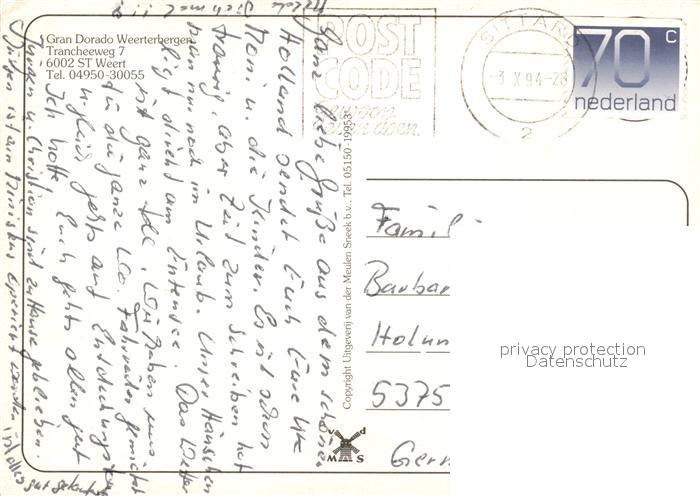 Gran Dorado Weerterbergen
Trancheeweg 7
6002 ST Weert
Tel. 04950-30055
POST
CODE
gewoon
even doen.
SITTARD
-3 X 94-20
2
70 c
nederland
Ganz liebe Grüße aus dem schönen
Holland sendet Euch Eure
Moni u. die Kinder. Es ist schon
traurig, aber Zeit zum Schreiben hat
man nur noch im Urlaub. Unser Häuschen
liegt direkt am Entensee. Das Wetter
ist ganz toll. Wir haben uns
für die ganze Fahrräder gemietet
u. gleich geht's auf Entdeckungstour
Ich hoffe Euch geht's allen gut
Jürgen u. Christian sind zu Hause geblieben.
Jürgen ist am Meniskus operiert worden, ist alles gut gelaufen
Copyright Uitgeverij van der Meulen Sneek b.v., Tel. 05150-19953
v d
M S
Famil
Barbar
Holun
5375
Germ
privacy protection
Datenschutz